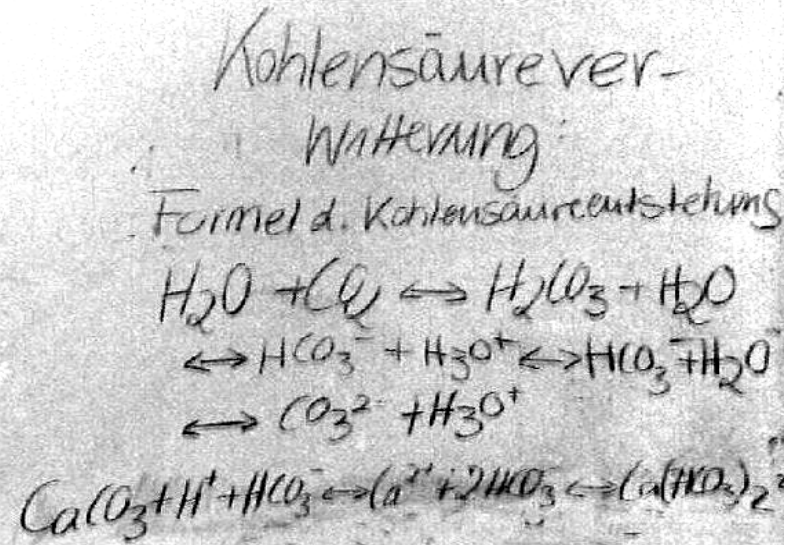 Kohlensäurever-
witterung:
Formel d. Kohlensäureentstehung
H₂O + CO₂ ↔ H₂CO₃ + H₂O
↔ HCO₃⁻ + H₃O⁺ ↔ HCO₃⁻ + H₂O
↔ CO₃²⁻ + H₃O⁺
CaCO₃ + H⁺ + HCO₃⁻ ↔ Ca²⁺ + 2HCO₃⁻ ↔ Ca(HCO₃)₂